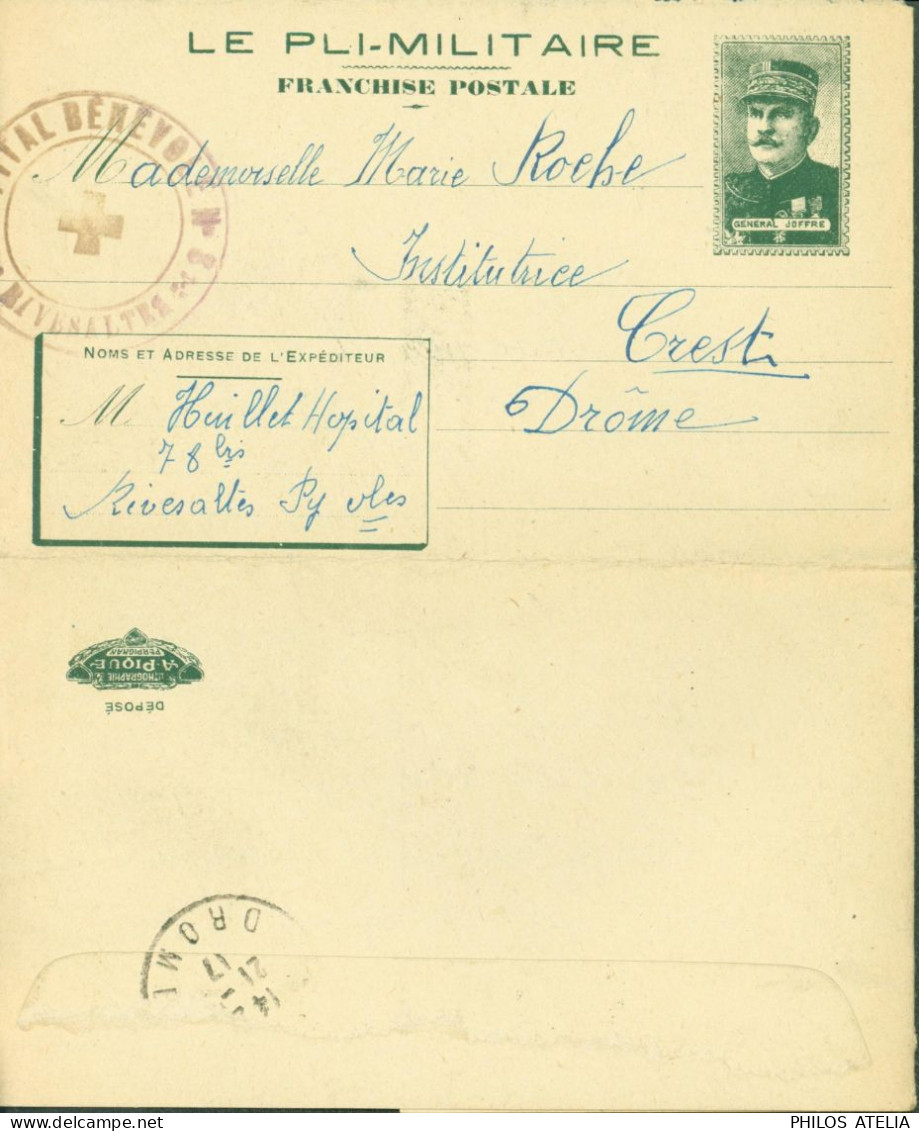 LE PLI-MILITAIRE
FRANCHISE POSTALE
GÉNÉRAL JOFFRE
ITAL BÉNÉVOLE N°
RIVESALTES
Mademoiselle Marie Roche
Institutrice
Crest
Drôme
NOMS ET ADRESSE DE L'EXPÉDITEUR
M. Huillet Hopital
78 bis
Rivesaltes Py Oles
LITHOGRAPHIE
A. PIQUE
PERPIGNAN
DÉPOSÉ
DROM
21
17
14
PHILOS ATELIA